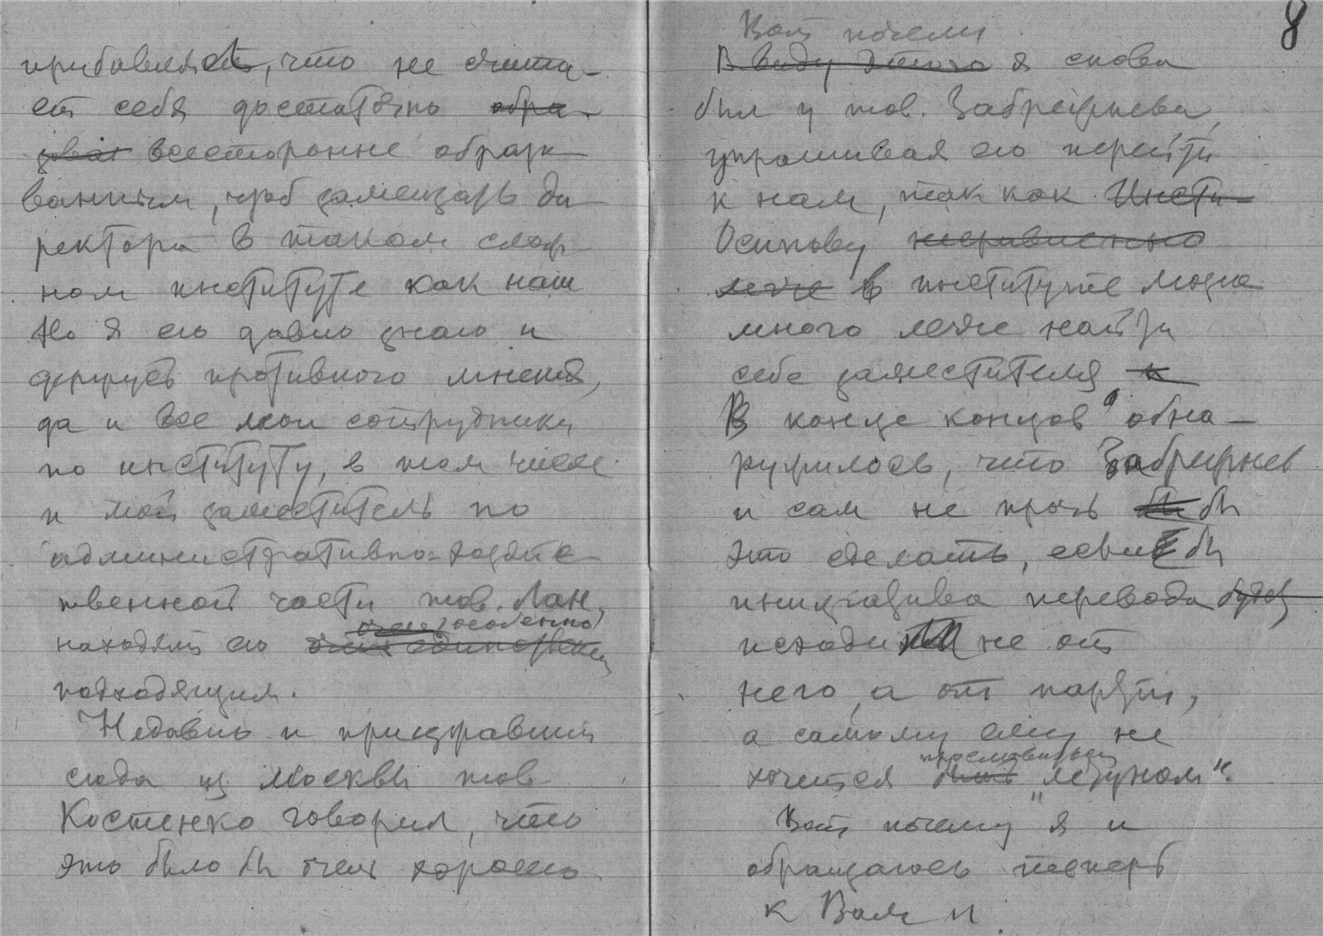 прибавляет, что не счита-
ет себя достаточно обра-
зован всесторонне образо-
ванным, чтоб замещать ди-
ректора в таком слож-
ном институте как наш
Но я его давно знаю и
держусь противного мнения,
да и все мои сотрудники
по институту, в том числе
и мой заместитель по
административно-хозяйс-
твенной части тов. Лан,
очень (особенно)
находят его очень
подходящим.
Недавно и приезжавший
сюда из Москвы тов
Костенко говорил, что
это было бы очень хорошо
8
Вот почему
В виду этого я снова
был у тов. Забрежнева,
упрашивая его перейти
к нам, так как Инсти-
Осипову несравненно
легче в институтеможно
много легче найти
себе заместителя к
В конце концов обна-
ружилось, что Забрежнев
и сам не прочь бы бы
это сделать, если бы
инициатива перевода будет
исходила не от
него, а от партии,
а самому ему не
хочется быть "летуном".
Вот почему я и
обращаюсь теперь
к Вам и